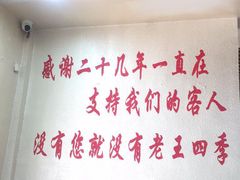 感谢二十几年一直在
支持我们的客人
没有您就没有老王四季